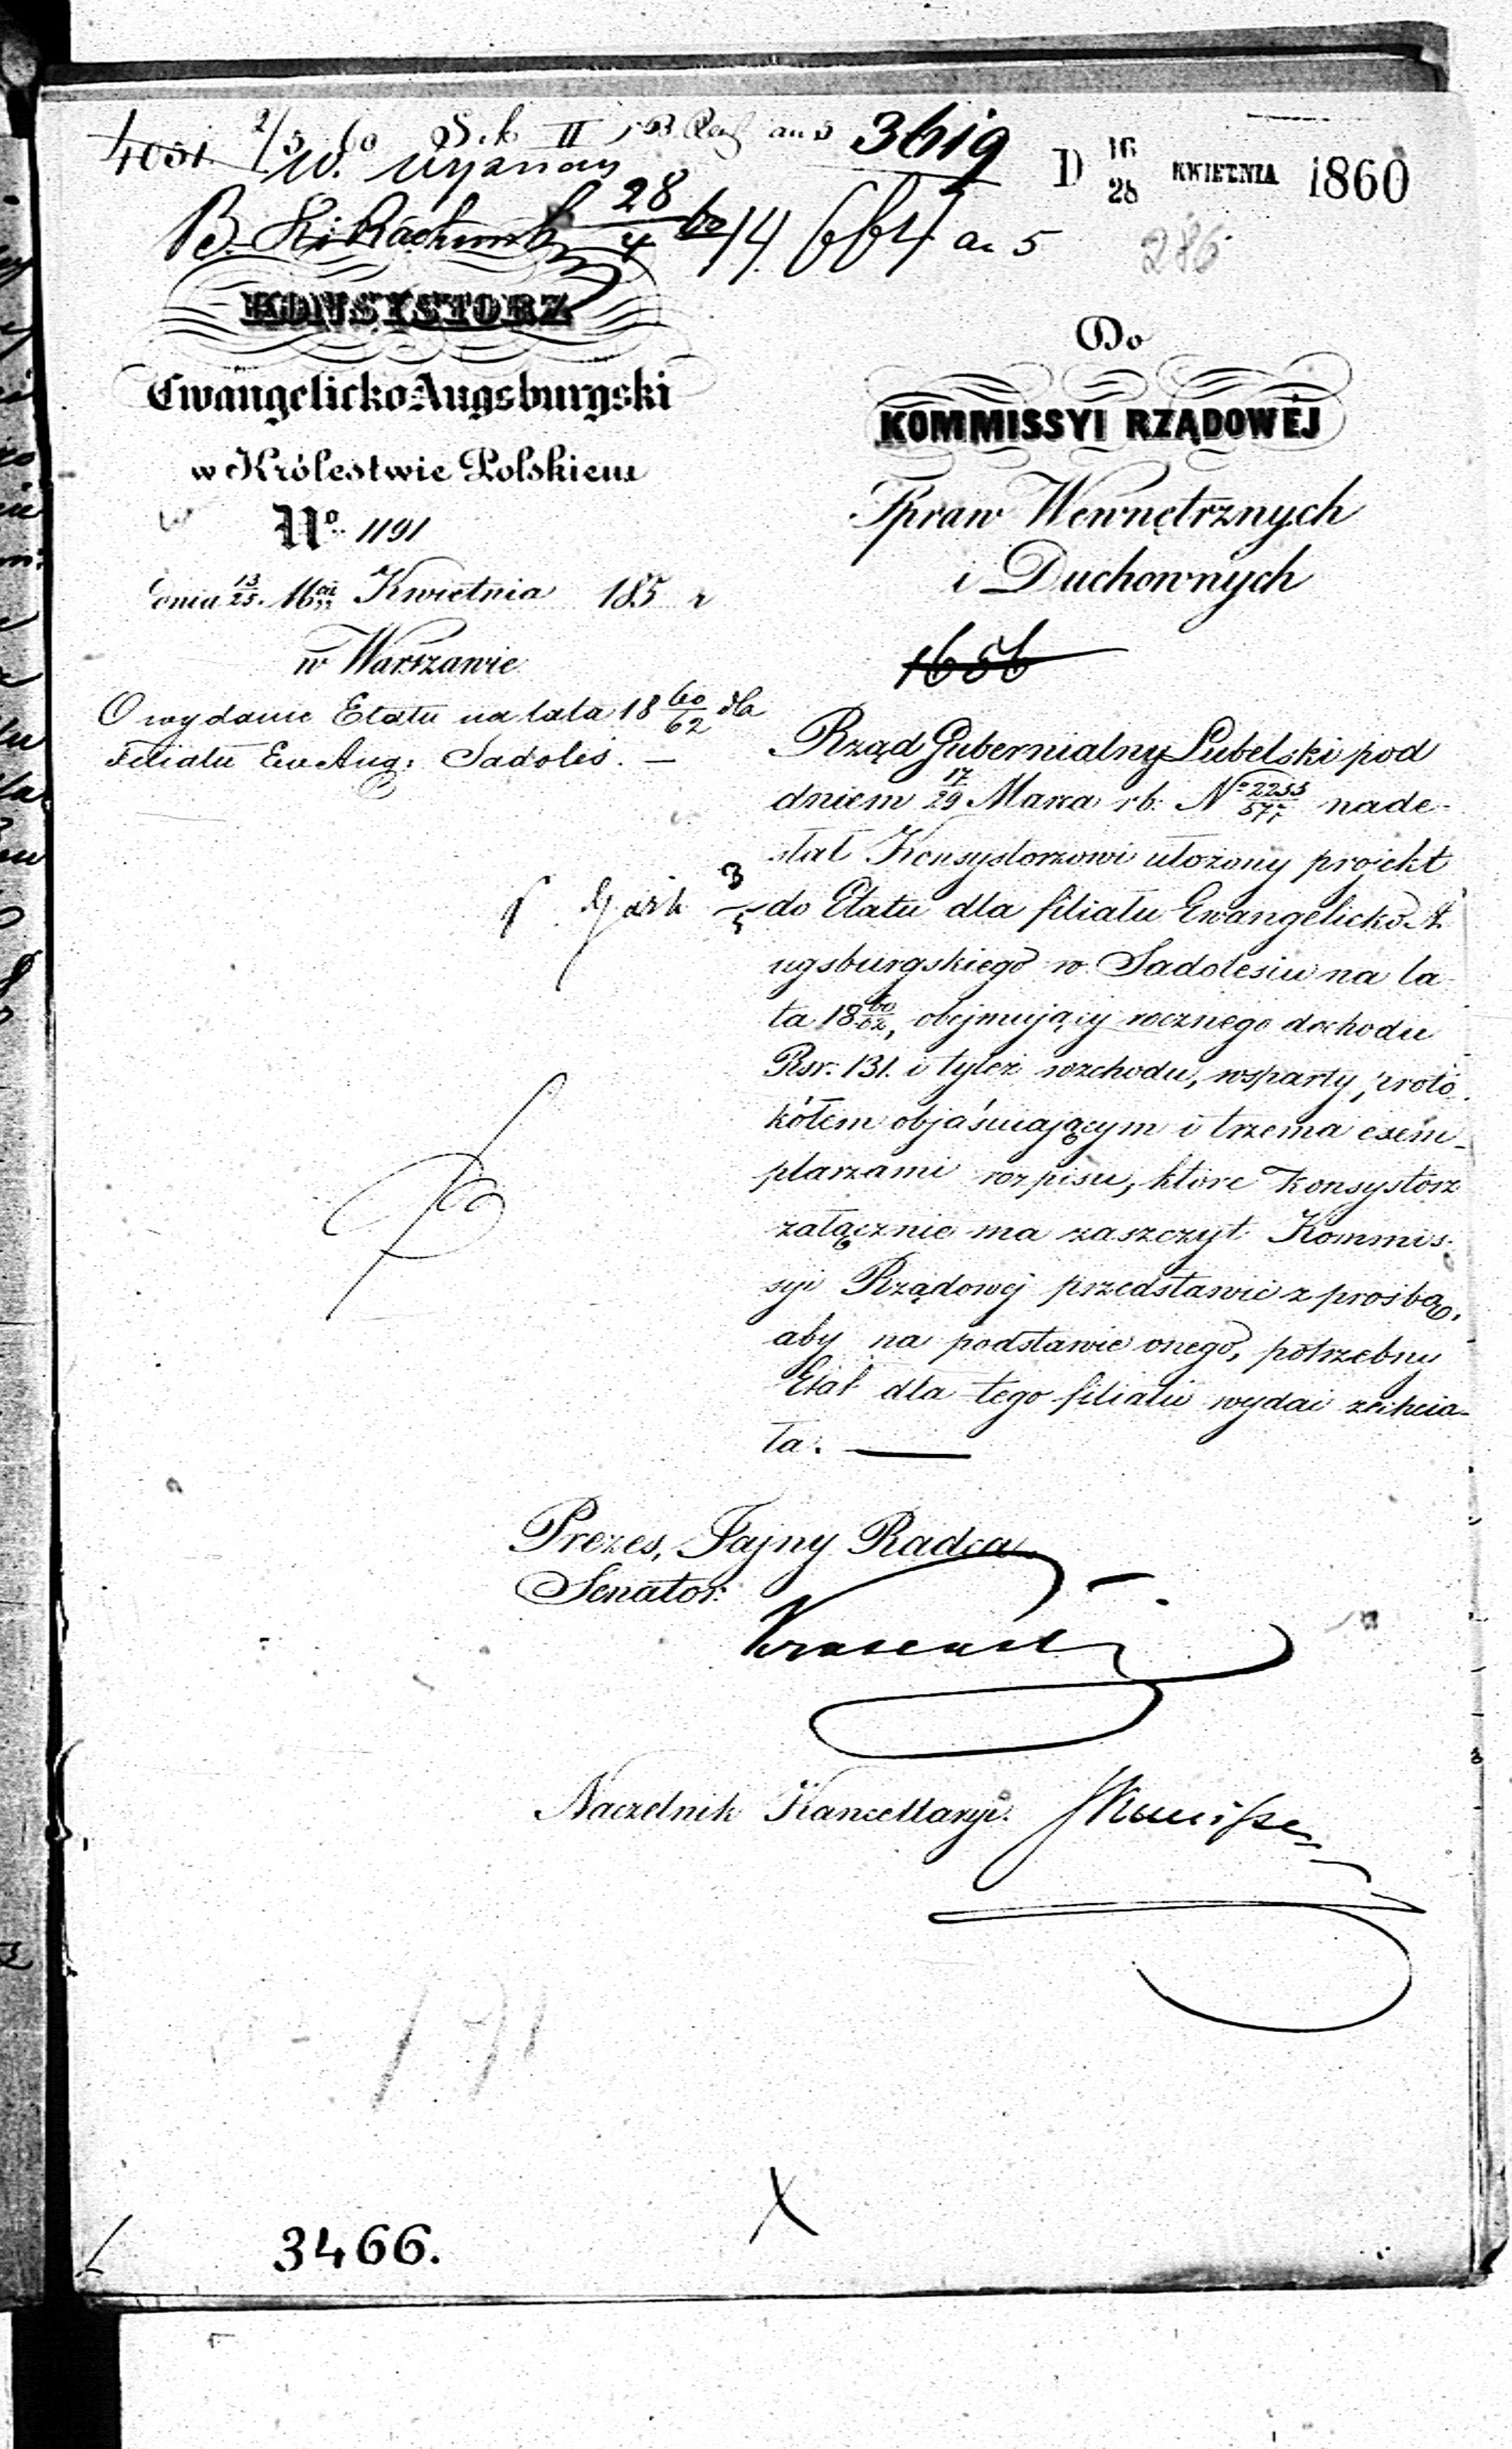 4031 2/5 60 S.k II an 5 3619 D 16/28 KWIETNIA 1860
W.
B. 28/4 60 14. 664 an 5 286
KONSYSTORZ
Ewangelicko Augsburgski
w Królestwie Polskiem
No 1191
dnia 13/25. Kwietnia 185 r
w Warszawie
O wydanie Etatu na lata 18 60/62 dla
Filiału Ew Aug: Sadoleś. —
Do
KOMMISSYI RZĄDOWÉJ
Spraw Wewnętrznych
i Duchownych
1656
Rząd Gubernialny Lubelski pod
dniem 17/29 Marca rb. No nade-
słał Konsystorzowi ułożony projekt
do Etatu dla filiału Ewangelicko A
ugsburgskiego w Sadolesiu na la
ta 18 60/62, obejmujący rocznego dochodu
Rsr. 131. i tyleż rozchodu, wsparty proto
kółem objaśniającym i trzema exem-
plarzami rozpisu, które Konsystorz
załącznie ma zaszczyt Kommis
syi Rządowej przedstawić z prośbą,
aby na podstawie onego, potrzebny
Etat dla tego filiału wydać zechcia-
ła. —
3/5
Prezes, Tajny Radca
Senator
Naczelnik Kancellaryi.
191
3466.